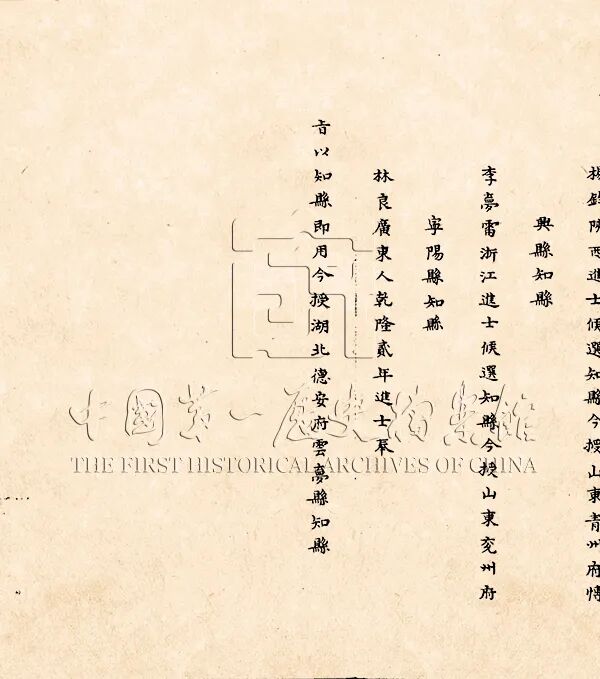 楊錦陝西進士候選知縣今授山東青州府博
興縣知縣
李夢雷浙江進士候選知縣今授山東兖州府
寧陽縣知縣
林良廣東人乾隆貳年進士奉
旨以知縣即用今授湖北德安府雲夢縣知縣
中國第一歷史檔案館
THE FIRST HISTORICAL ARCHIVES OF CHINA